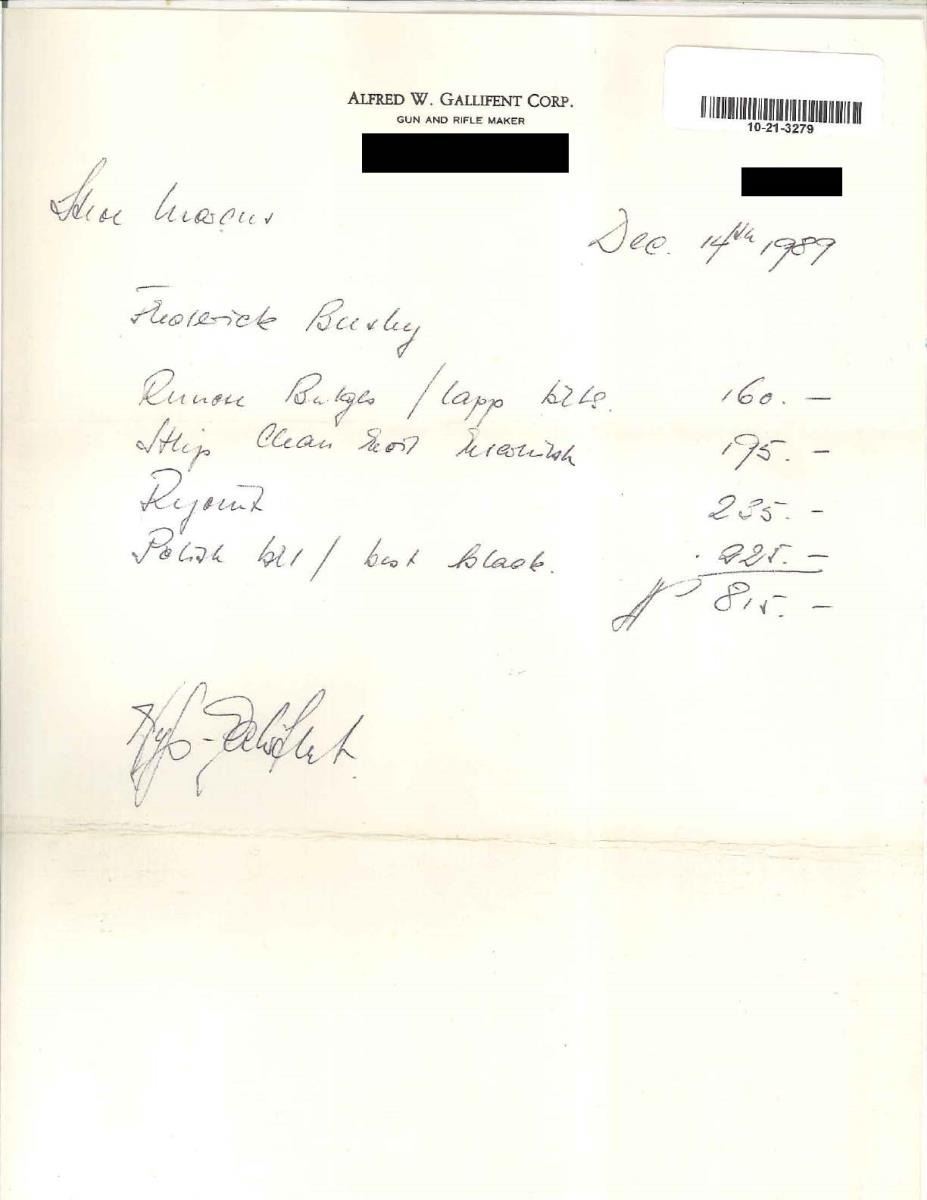 ALFRED W. GALLIFENT CORP.
GUN AND RIFLE MAKER
10-21-3279
Steve Marcus
Dec. 14th 1989
Frederick Beesley
Remove Bulges / lapp bbls. 160. —
Strip Clean 195. —
Rejoint 235. —
Polish bbl / best black. 225. —
815. —